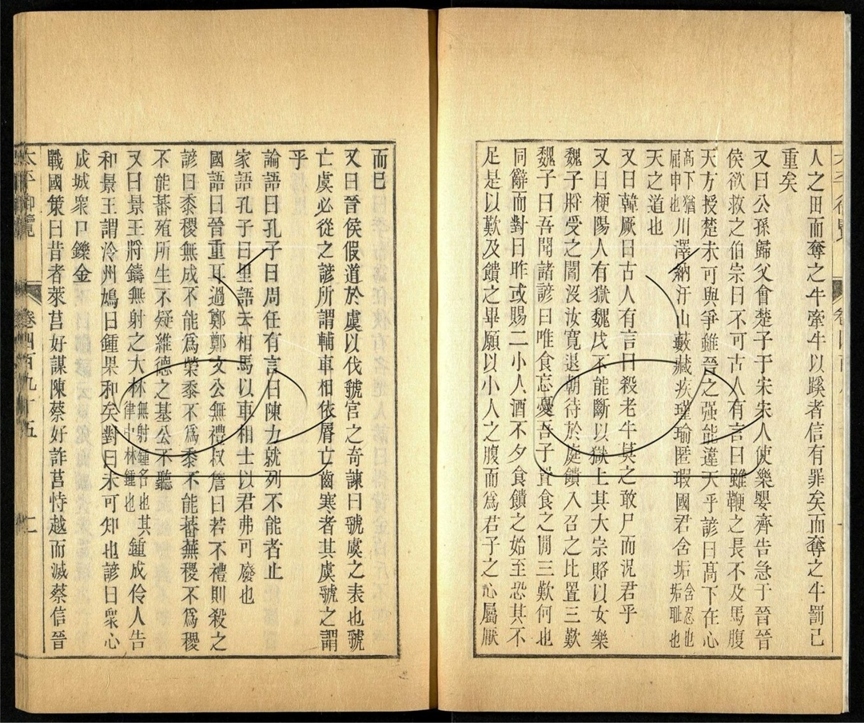 人之田而奪之牛牽牛以蹊者信有罪矣而奪之牛罰已
重矣
又曰公孫歸父會楚子于宋宋人使樂嬰齊告急于晉晉
侯欲救之伯宗曰不可古人有言曰雖鞭之長不及馬腹
天方授楚未可與爭雖晉之强能違天乎諺曰高下在心
高下猶屈申也川澤納汙山藪藏疾瑾瑜匿瑕國君含垢含忍也垢恥也
天之道也
又曰韓厥曰古人有言曰殺老牛莫之敢尸而況君乎
又曰梗陽人有獄魏戊不能斷以獄上其大宗賂以女樂
魏子將受之閻沒汝寬退朝待於庭饋入召之比置三歎
魏子曰吾聞諸諺曰唯食忘憂吾子置食之間三歎何也
同辭而對曰昨或賜二小人酒不夕食饋之始至恐其不
足是以歎及饋之畢願以小人之腹而爲君子之心屬厭
而已
又曰晉侯假道於虞以伐虢宮之奇諫曰虢虞之表也虢
亡虞必從之諺所謂輔車相依脣亡齒寒者其虞虢之謂
乎
論語曰孔子曰周任有言曰陳力就列不能者止
家語孔子曰里語云相馬以車相士以君弗可廢也
國語曰晉重耳過鄭鄭文公無禮叔詹曰若不禮則殺之
諺曰黍稷無成不能爲榮黍不爲黍不能蕃蕪稷不爲稷
不能蕃殖所生不疑維德之基公不聽
又曰景王將鑄無射之大林無射鍾名也其律中林鍾也鍾成伶人告
和景王謂泠州鳩曰鍾果和矣對曰未可知也諺曰衆心
成城衆口鑠金
戰國策曰昔者萊莒好謀陳蔡好詐莒恃越而滅蔡信晉
太平御覽
卷四百九十五